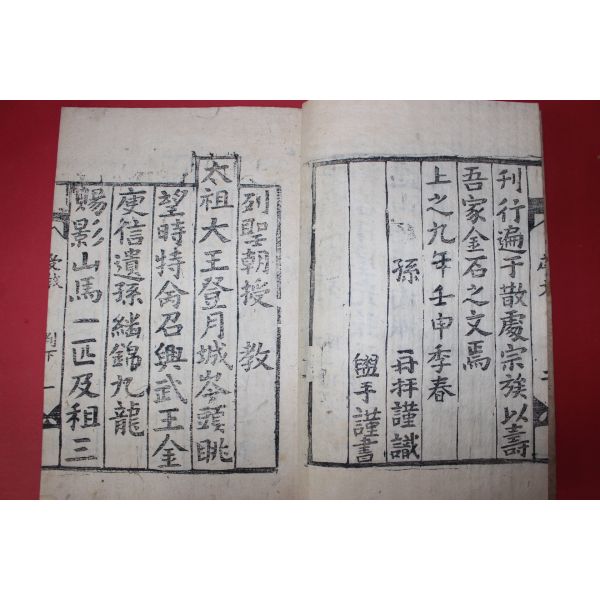 刊行遍于散處宗族以壽
吾家金石之文焉
上之九年壬申季春
孫 再拜謹識
盥手謹書
列聖朝授教
太祖大王登月城岑頭眺
望時特命召興武王金
庾信遺孫繼錦九龍
賜影山馬二匹及租三